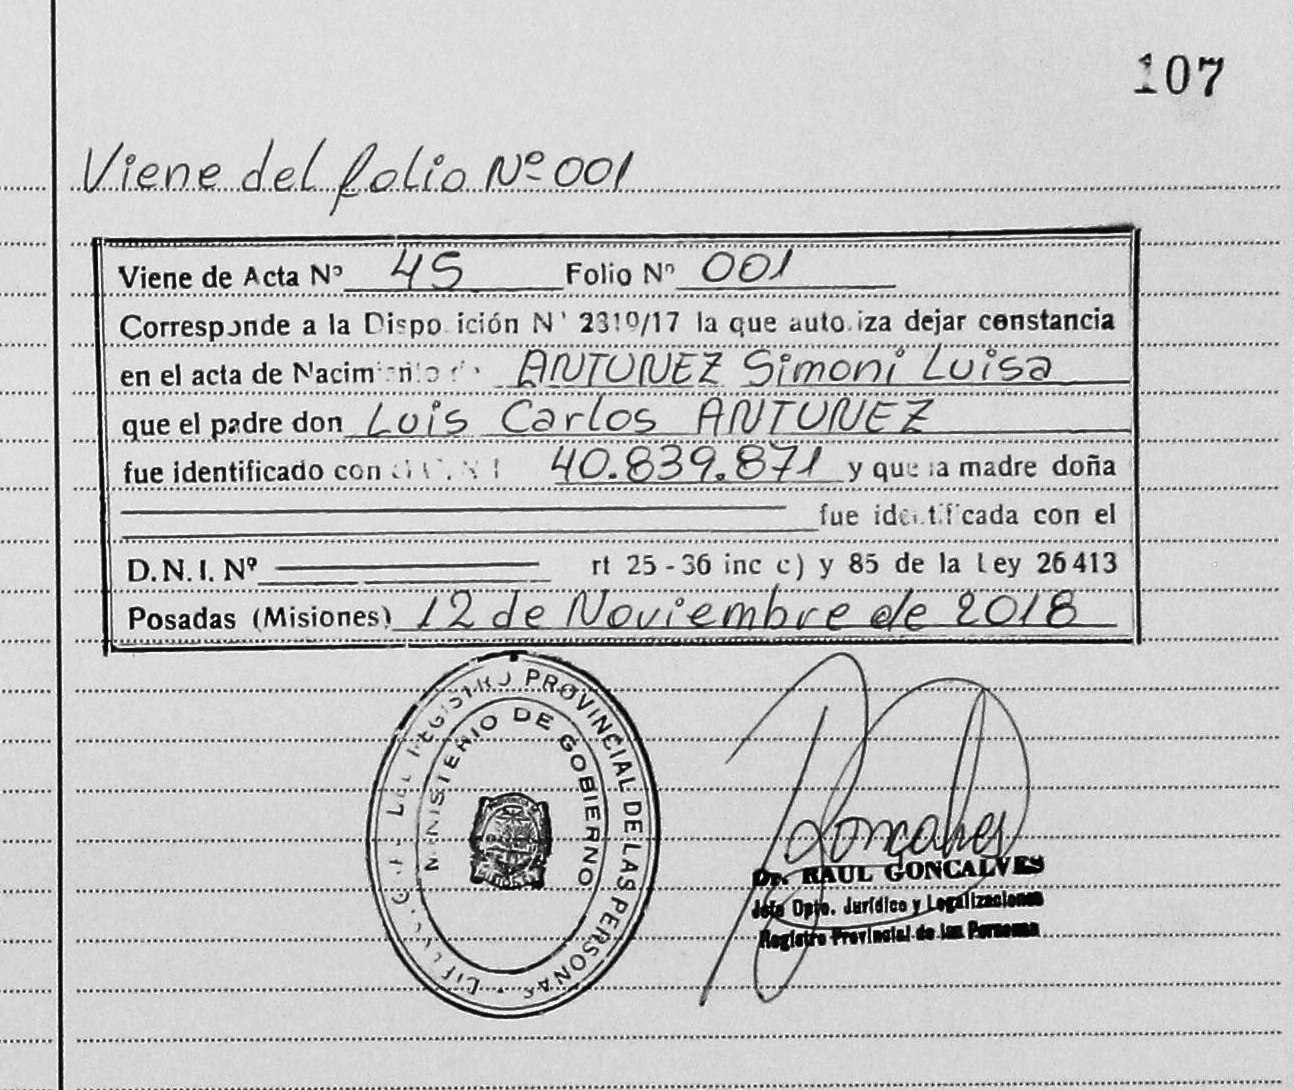 107
Viene del folio Nº 001
Viene de Acta Nº 45 Folio Nº 001
Corresponde a la Dispo ición Nº 2319/17 la que auto iza dejar constancia
en el acta de Nacimiento ANTUNEZ Simoni Luisa
que el padre don Luis Carlos ANTUNEZ
fue identificado con 40.839.871 y que la madre doña
fue identificada con el
D.N.I. Nº rt 25-36 inc c) y 85 de la Ley 26413
Posadas (Misiones) 12 de Noviembre de 2018
REGISTRO PROVINCIAL DE LAS PERSONAS
MINISTERIO DE GOBIERNO
Goncalves
Dr. RAUL GONCALVES
Jefe Dpto. Jurídico y Legalizaciones
Registro Provincial de las Personas